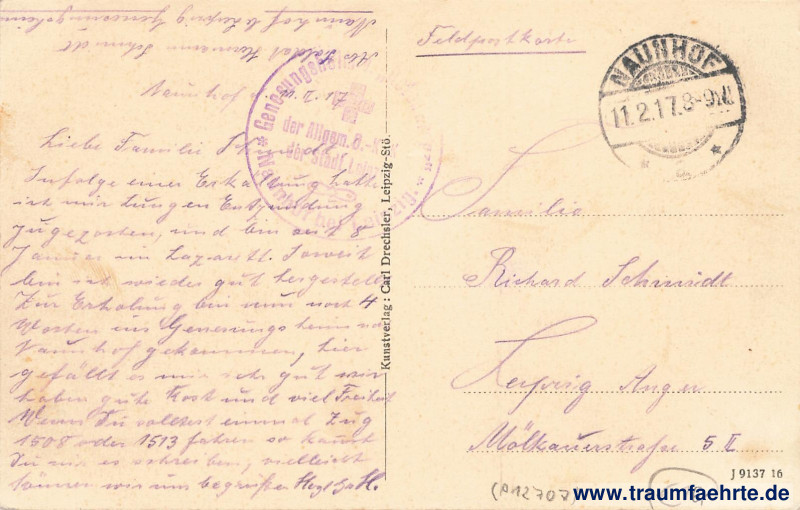 Abs Soldat Hermann Schmidt
Naunhof b Leipzig Genesungsheim
Naunhof d. 11. II. 17
Liebe Familie Schmidt
Infolge einer Erkältung hatte
ich mir Lungen Entzündung
zugezogen, und bin seit 8
Januar im Lazarett. Soweit
bin ich wieder gut hergestellt
Zur Erholung bin nun noch 4
Wochen ins Genesungsheim nach
Naunhof gekommen, hier
gefällt es mir sehr gut wir
haben gute Kost und viel Freiheit
Wenn Du solltest einmal Zug
1508 oder 1513 fahren so kannst
Du mir es schreiben, vielleicht
können wir uns begrüßen Hrzl
Genesungsheim
der Allgem. O.-K.
der Stadt Leipzig
Naunhof bei Leipzig
Kunstverlag: Carl Drechsler, Leipzig-Stö.
Feldpostkarte
NAUNHOF
11.2.17.8-9N.
Familie
Richard Schmidt
Leipzig Anger
Mölkauerstraße 5 II
J 9137 16
(P12707)
www.traumfaehrte.de